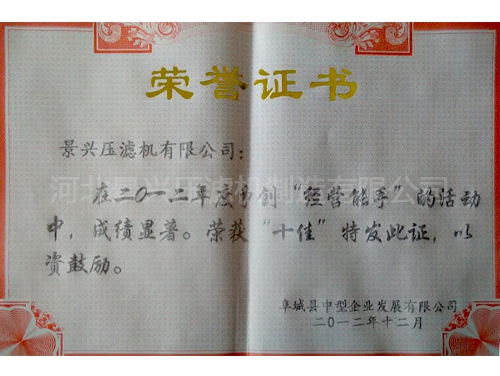 荣誉证书
景兴压滤机有限公司：
在二〇一二年度帝创“经营能手”的活动
中，成绩显著。荣获“十佳”特发此证，以
资鼓励。
阜城县中型企业发展有限公司
二〇一二年十二月
河北景兴压滤机制造有限公司